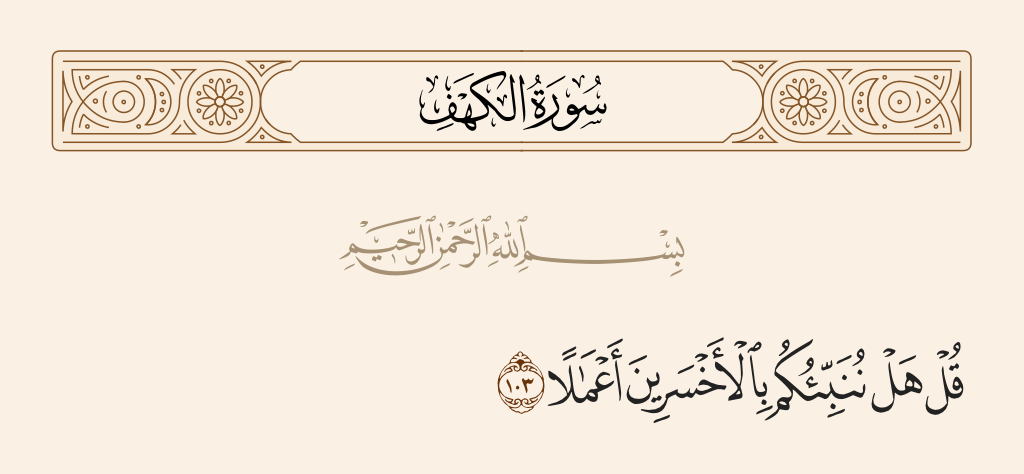 سُورَةُ الكَهْفِ
بِسْمِ ٱللَّهِ ٱلرَّحْمَٰنِ ٱلرَّحِيمِ
قُلْ هَلْ نُنَبِّئُكُم بِٱلْأَخْسَرِينَ أَعْمَٰلًا ١٠٣